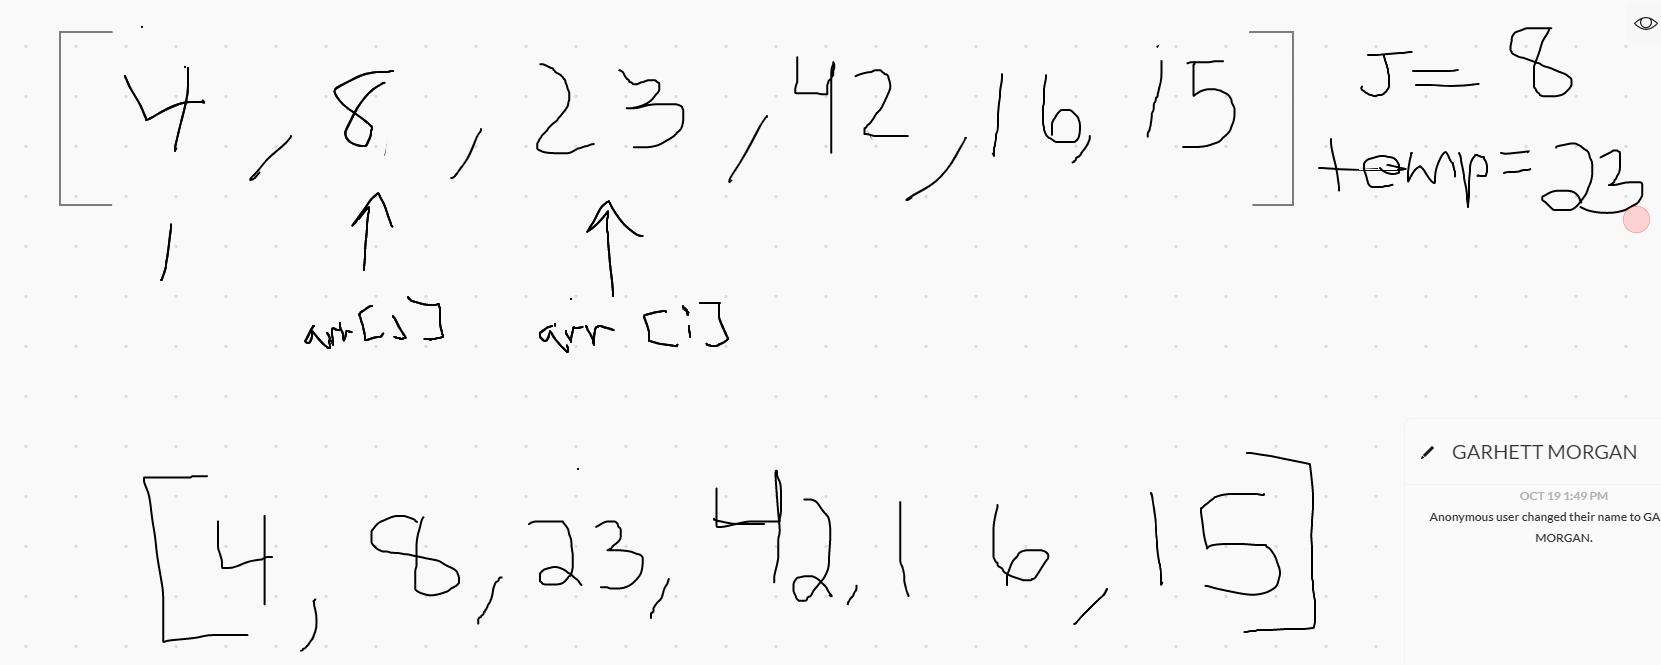 [4, 8, 23, 42, 16, 15] J = 8
temp = 23
arr[j] arr [i]
[4, 8, 23, 42, 16, 15]
GARHETT MORGAN
OCT 19 1:49 PM
Anonymous user changed their name to GA
MORGAN.